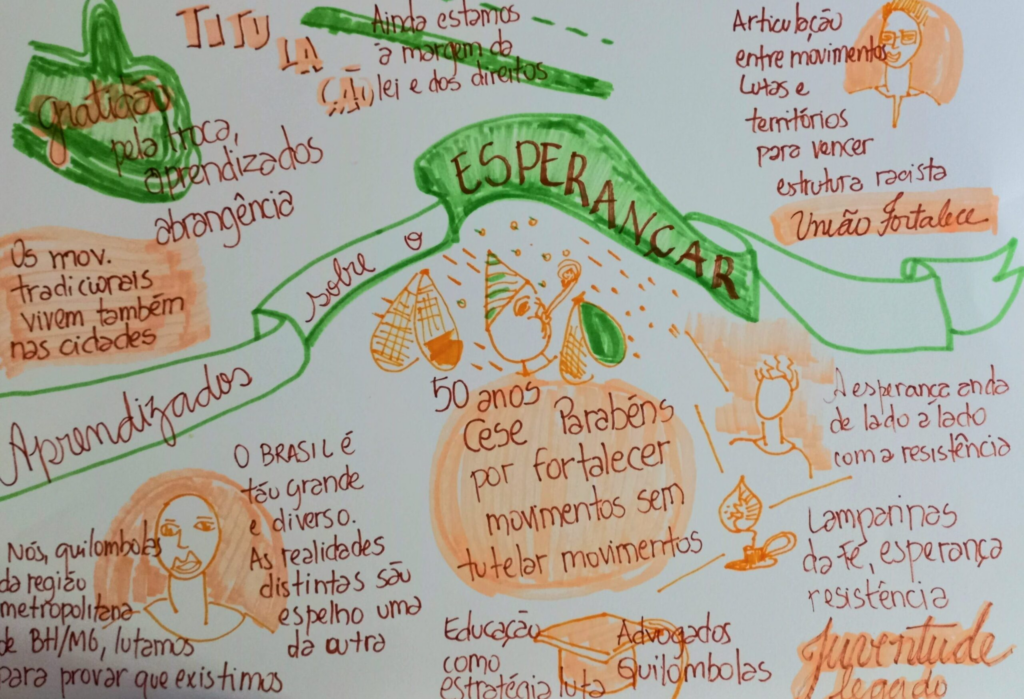 gratidão
pela troca,
aprendizados
abrangência
TITU
LA
ÇÃO
Ainda estamos
à margem da
lei e dos direitos
Articulação
entre movimentos
Lutas e
territórios
para vencer
estrutura racista
União Fortalece
Os mov.
tradicionais
vivem também
nas cidades
Aprendizados
sobre o
ESPERANÇAR
50 anos
Cese Parabéns
por fortalecer
movimentos sem
tutelar movimentos
A esperança anda
de lado a lado
com a resistência
O BRASIL é
tão grande
e diverso.
As realidades
distintas são
espelho uma
da outra
Nós, quilombolas
da região
metropolitana
de BH/MG, lutamos
para provar que existimos
Lamparinas
da Fé, esperança
resistência
Educação
como
estratégia luta
Advogados
Quilombolas
Juventude
legado